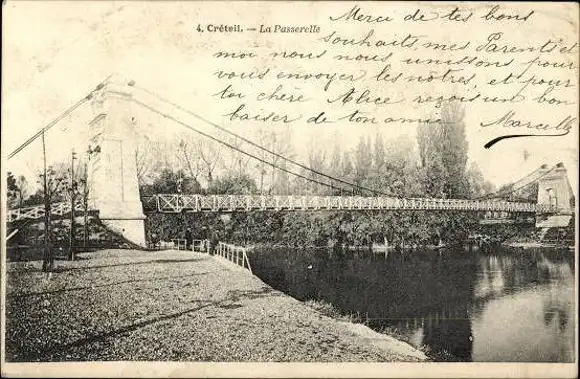 4. Créteil. — La Passerelle
Merci de tes bons
souhaits, mes Parents et
moi nous nous unissons pour
vous envoyer les nôtres, et pour
toi chère Alice reçois un bon
baiser de ton amie
Marcelle